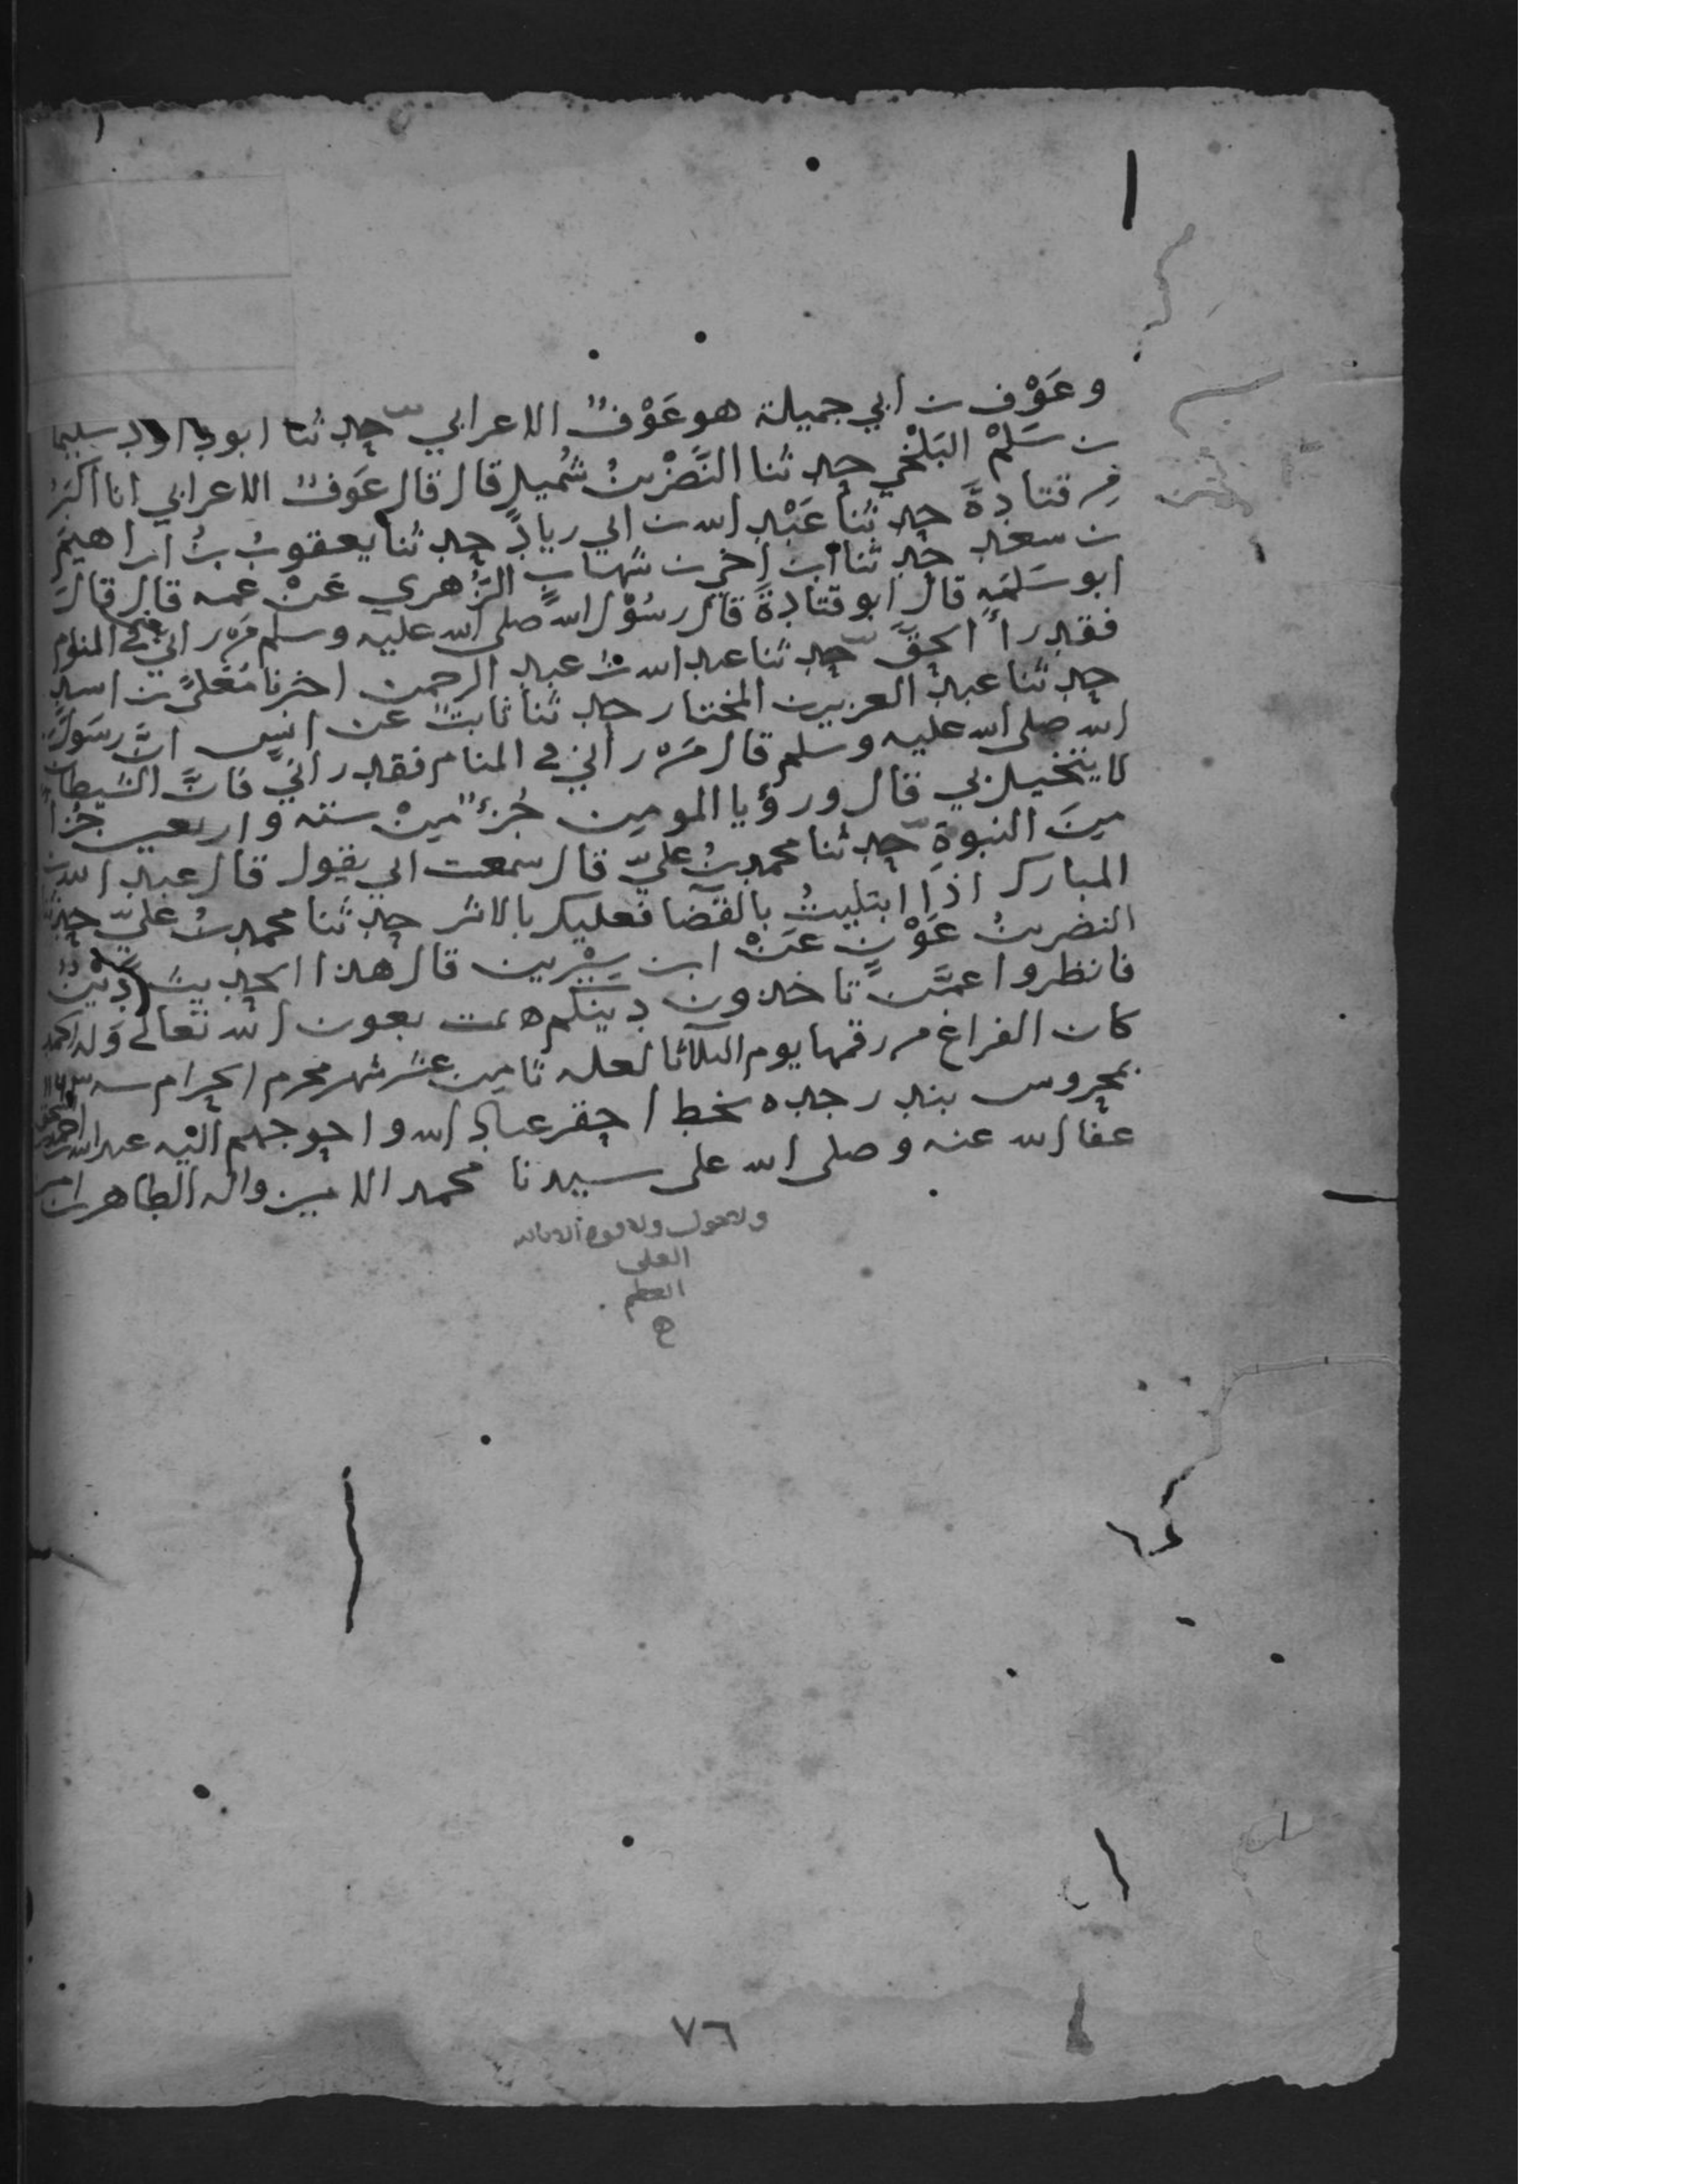 وعَوْف بن ابي جميلة هو عَوْفٌ الاعرابي حدثنا ابو داود سليما
بن سَلمْ البَلْخي حدثنا النَّضْر بنُ شُميلٍ قال قال عَوفٌ الاعرابي انا اكبَرُ
من قتادةَ حدثنا عَبْد الله بن ابي زيادٍ حدثنا يعقوبُ بنُ ابراهيم
بن سعد حدثنا ابن اخي بن شهابٍ الزُهري عَنْ عمه قال قالَ
ابو سَلمَه قال ابو قتادةَ قال رسُوْل الله صلى الله عليه وسلم مَن راني في المنام
فقد رأَ الحقَّ حدثنا عبد الله بنُ عبد الرحمن اخبرنا مُعَلى بن اسد
حدثنا عبد العزيز بن المختار حدثنا ثابتٌ عن انسٍ انَّ رسَوْلَ
الله صلى الله عليه وسلم قال مَن راني في المنام فقد راني فانَّ الشيطان
لا يتخيل بي قال ورؤيا المومن جُزءٌ منْ ستة واربعين جُزأً
مِنَ النبوةِ حدثنا محمد بنُ عليّ قال سمعت ابي يقول قال عبد الله بن
المبارك اذا ابتليتُ بالقضا فعليك بالاثر حدثنا محمد بنُ عليّ حدثنا
النضر بنُ عَوْنٍ عَنْ ابن سِيْرين قال هذا الحديث دِيْنٌ
فانظروا عمَّن تاخذون دينكم ه تمت بعون الله تعالى وله الحمد
كان الفراغ من رقمها يوم الثلاثا لعله ثامن عشر شهر محرم الحرام سنه
بمحروس بندر جده بخط احقر عباد الله واحوجهم اليْه عبد الله
عفا الله عنه وصلى الله على سيدنا محمد الامين واله الطاهرين امين
ولا حول ولا قوة الا بالله
العلى
العظيم
ه
٧٦